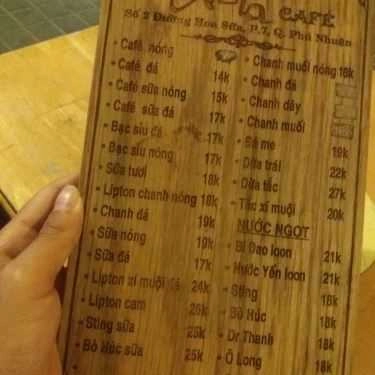 CAFÉ
Số 2 Đường Hoa Sữa, P.7, Q. Phú Nhuận
Café nóng
Café đá 14k
Café sữa nóng 15k
Café sữa đá 17k
Bạc sỉu đá
Bạc sỉu nóng 17k
Sữa tươi 18k
Lipton chanh nóng 18k
Chanh đá 19k
Sữa nóng 19k
Sữa đá 17k
Lipton xí muội đá 24k
Lipton cam 25k
Sting sữa 25k
Bò Húc sữa 25k
Chanh muối nóng 18k
Chanh đá
Chanh dây
Chanh muối
Đá me 19k
Dừa trái 22k
Dừa tắc 27k
Tắc xí muội 20k
NƯỚC NGỌT
Bí Đao loon 21k
Nước Yến loon 21k
Sting 18k
Bò Húc 18k
Dr Thanh 18k
Ô Long 18k